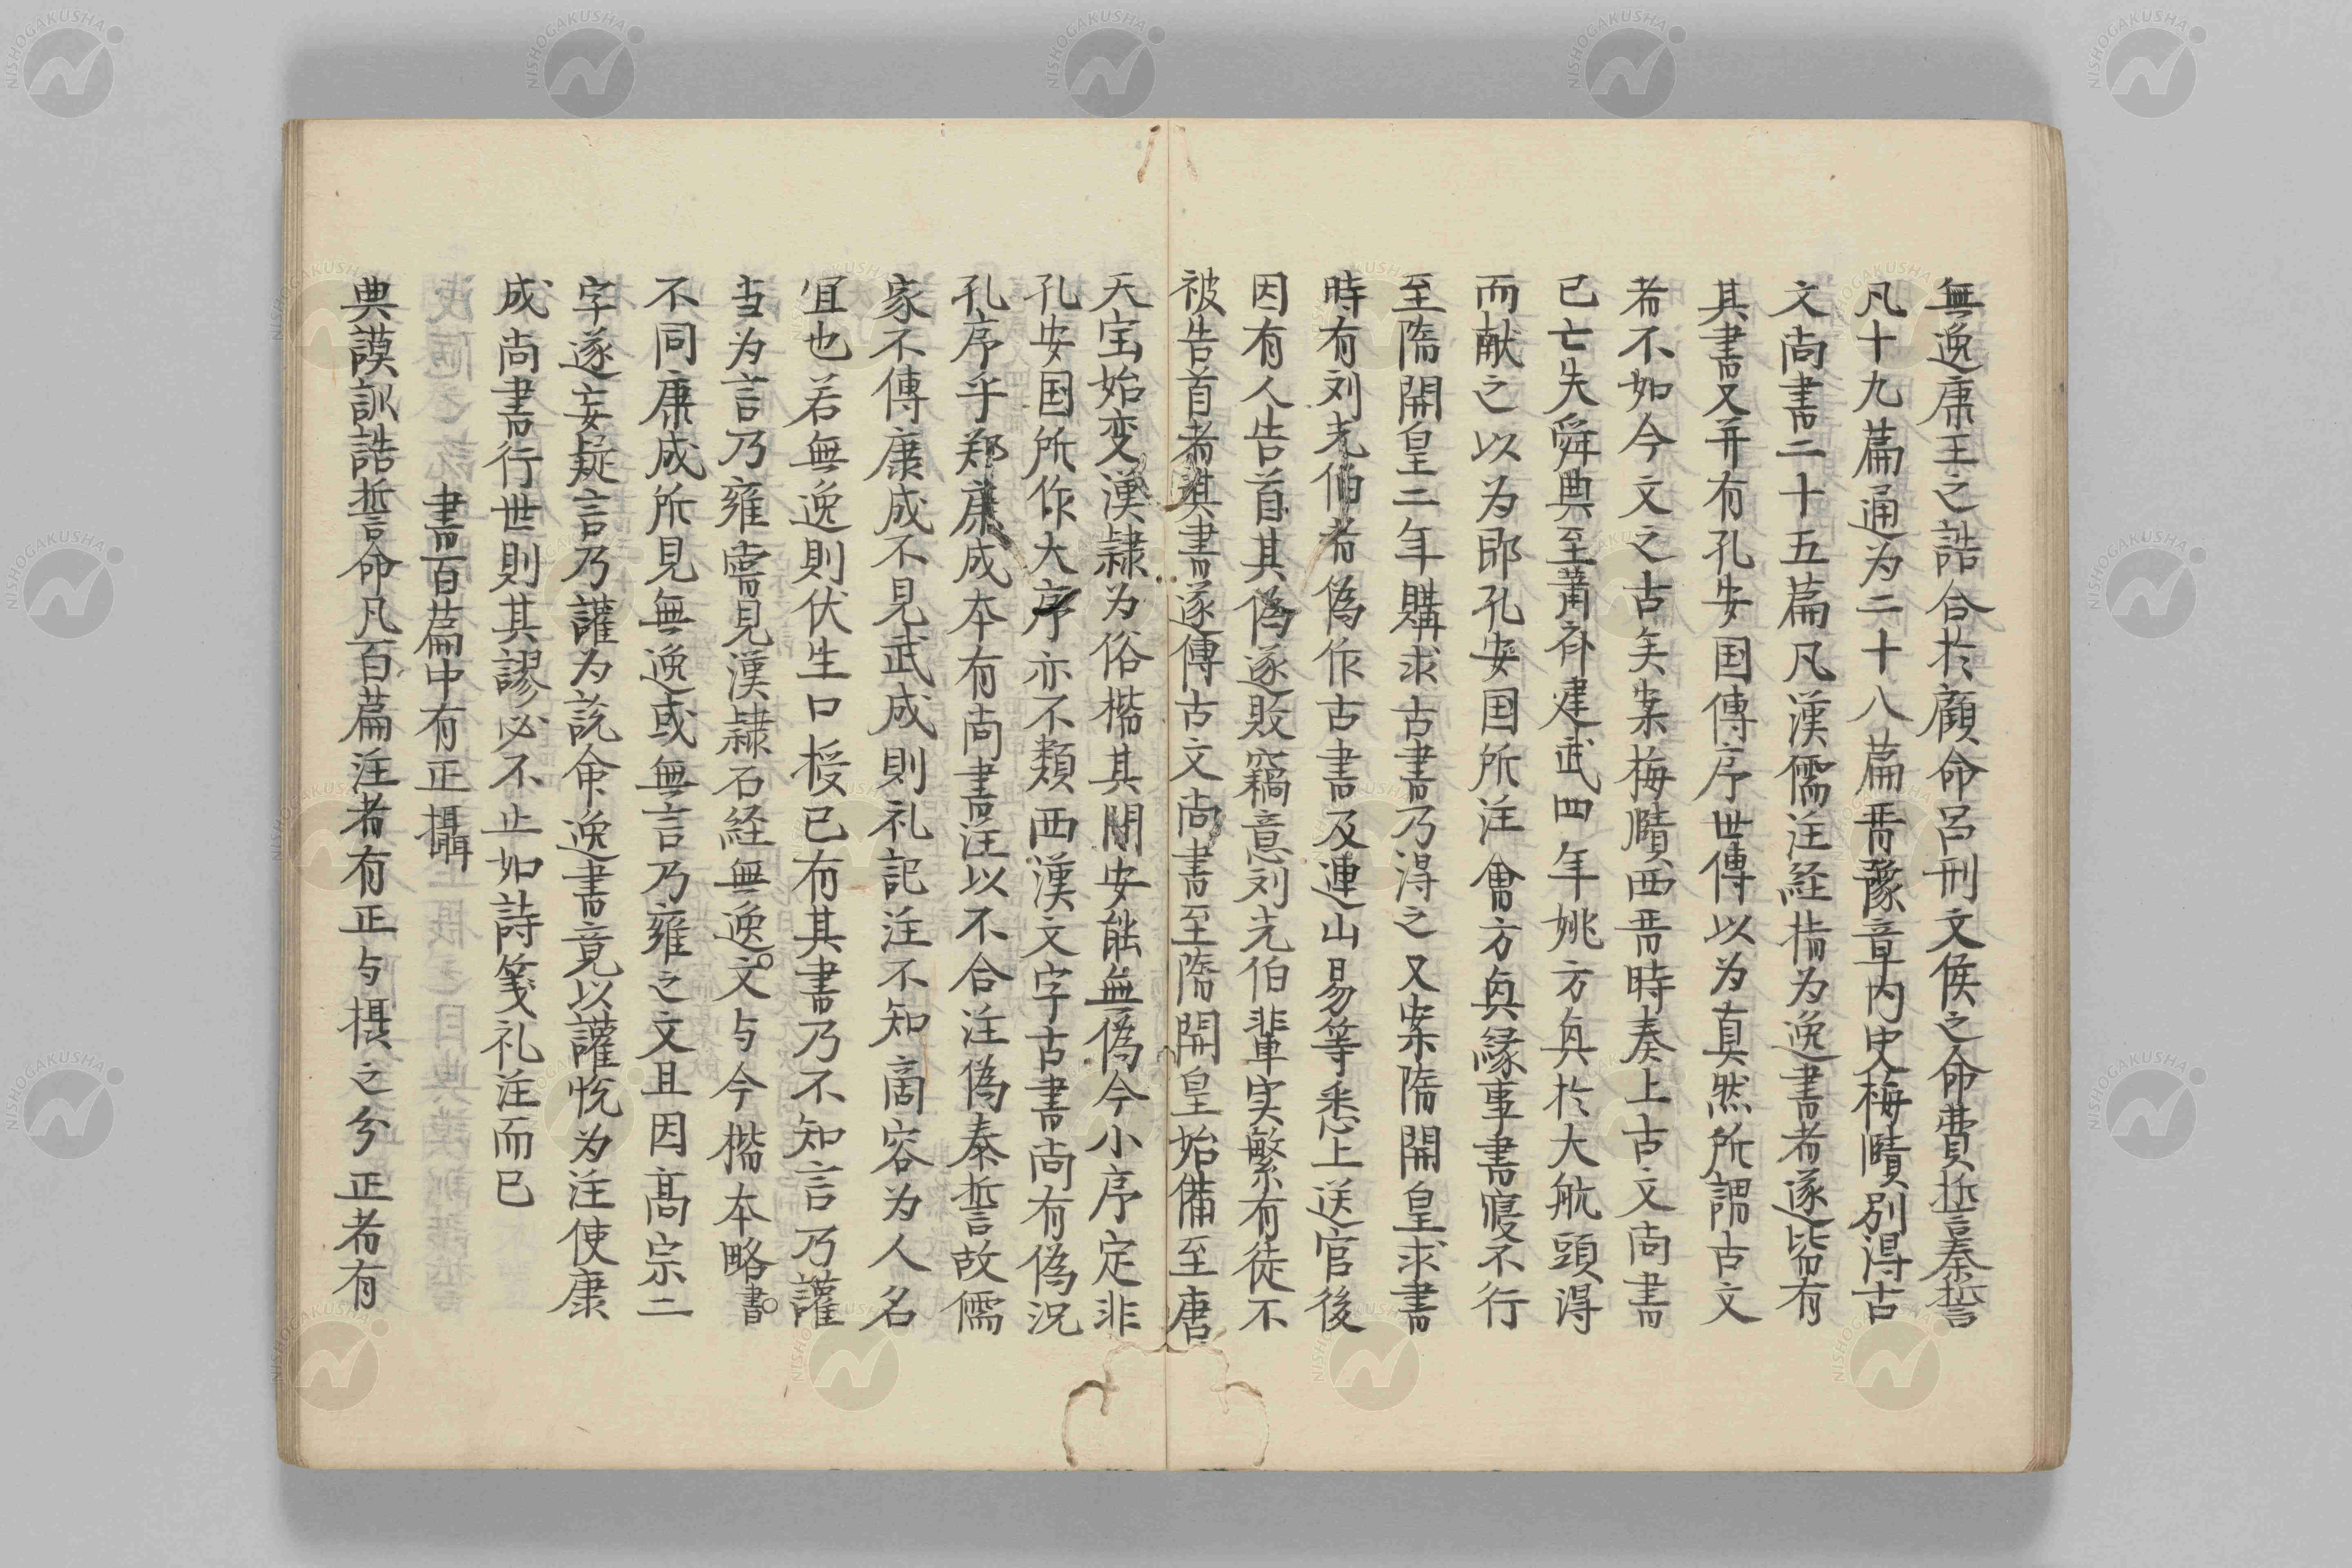 無逸康王之誥合於顧命呂刑文侯之命費誓秦誓
凡十九篇通为二十八篇晋豫章内史梅賾別淂古
文尚書二十五篇凡漢儒注経指为逸書者遂皆有
其書又并有孔安国傳序世傳以为真然所謂古文
者不如今文之古矣案梅賾西晋時奏上古文尚書
已亡失舜典至蕭斉建武四年姚方奥於大航頭淂
而献之以为即孔安国所注會方奥縁事書寝不行
至隋開皇二年購求古書乃淂之又案隋開皇求書
時有刘光伯者偽作古書及連山易等悉上送官後
因有人告首其偽遂敗竊意刘光伯輩实繁有徒不
被告首者其書遂傳古文尚書至隋開皇始備至唐
天宝始変漢隷为俗楷其間安能無偽今小序定非
孔安国所作大序亦不類西漢文字古書尚有偽况
孔序乎郑康成本有尚書注以不合注偽秦誓故儒
家不傳康成不見武成則礼記注不知商容为人名
宜也若無逸則伏生口授已有其書乃不知言乃讙
当为言乃雍需見漢隷石経無逸文与今楷本略書
不同康成所見無逸或無言乃雍之文且因高宗二
字遂妄疑言乃讙为説命逸書竟以讙悦为注使康
成尚書行世則其謬必不止如詩箋礼注而已
書百篇中有正攝
典謨訓誥誓命凡百篇注者有正与摂之分正者有